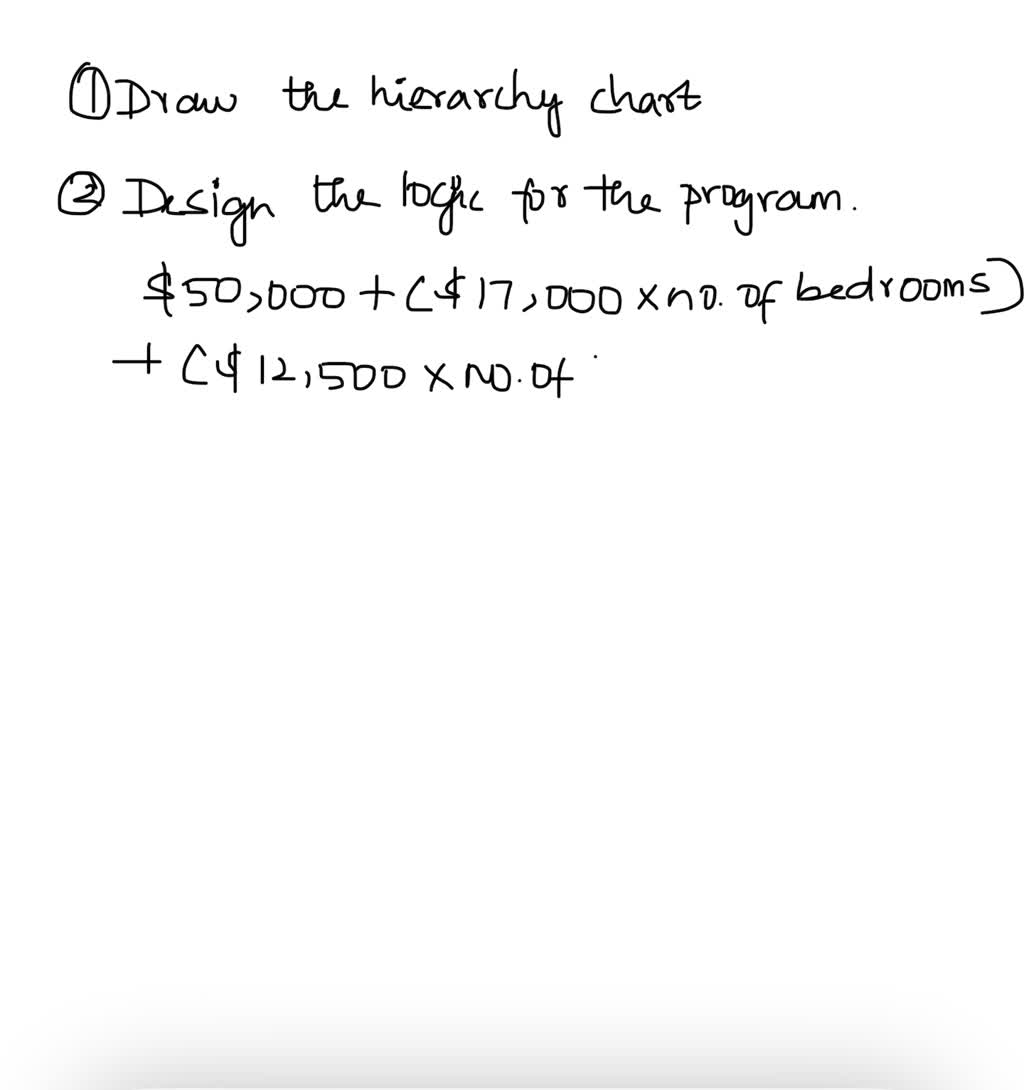 ① Draw the hierarchy chart
② Design the logic for the program.
$50,000 + ($17,000 x no. of bedrooms)
+ ($12,500 x NO. Of